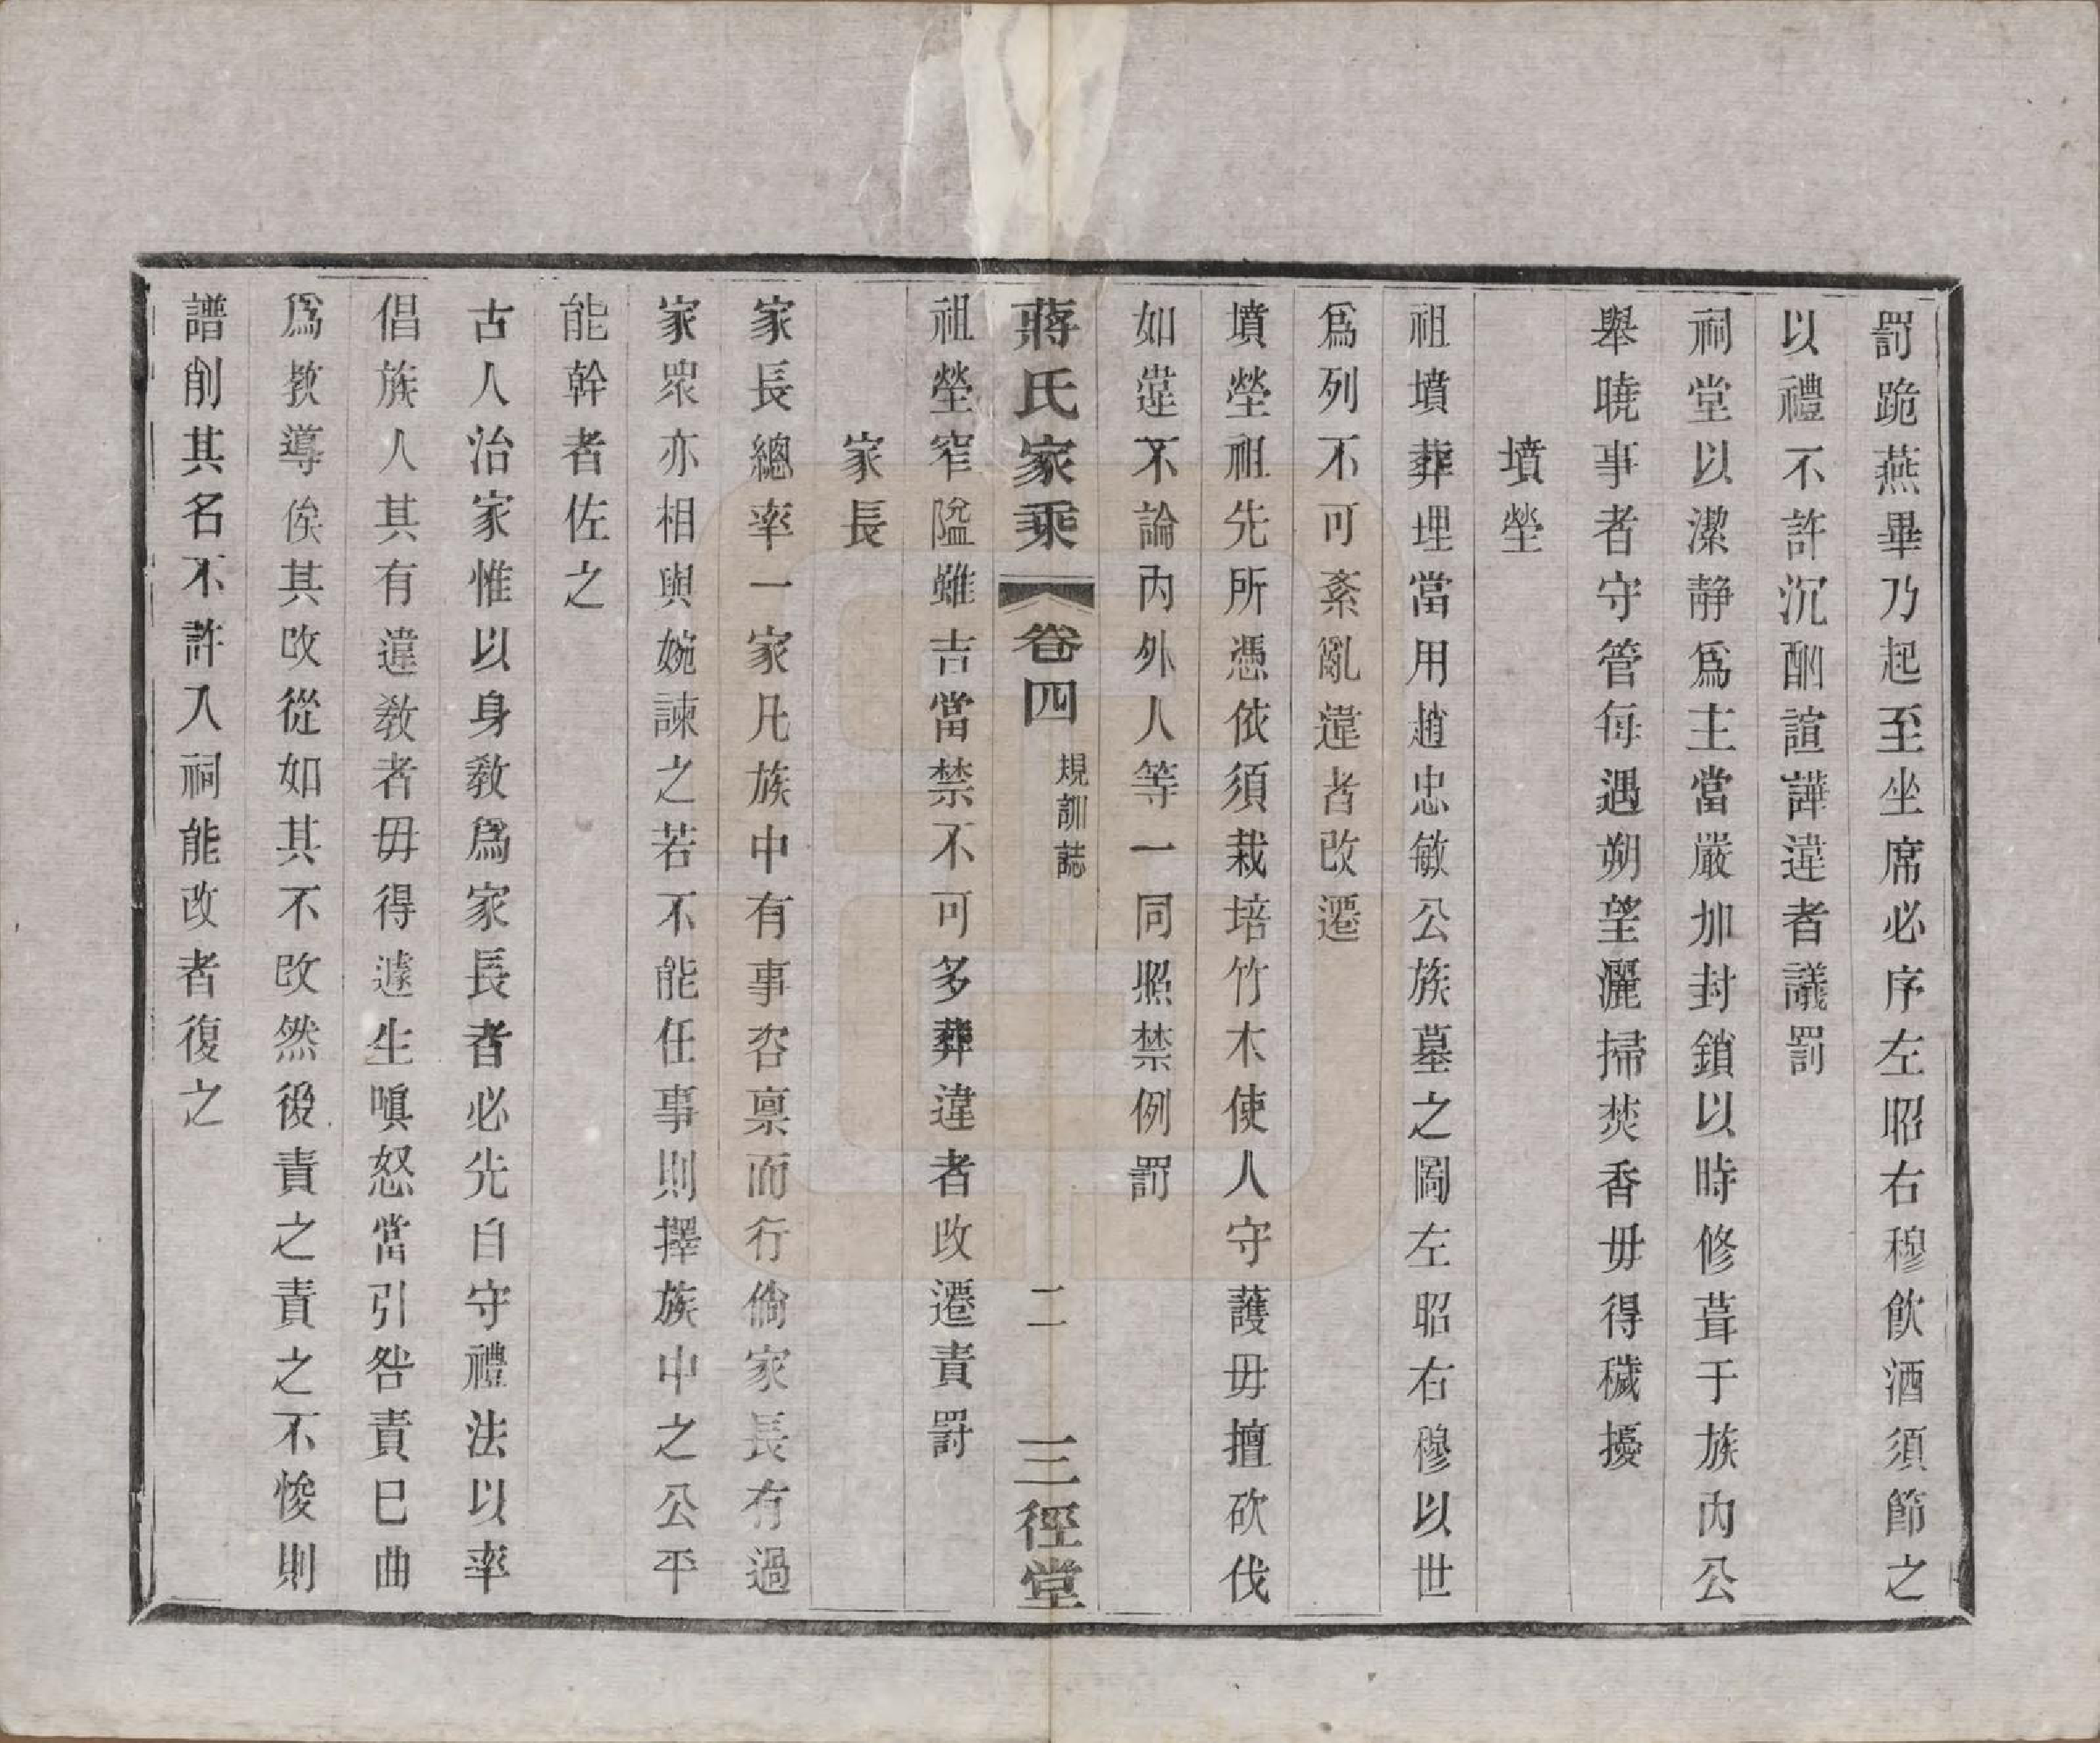 罰跪燕畢乃起至坐席必序左昭右穆飲酒須節之
以禮不許沉酗諠譁違者議罰
祠堂以潔静爲主當嚴加封鎖以時修葺于族內公
舉曉事者守管每遇朔望灑掃焚香毋得穢擾
墳塋
祖墳葬埋當用趙忠敏公族墓之圖左昭右穆以世
爲列不可紊亂違者改遷
墳塋祖先所憑依須栽培竹木使人守護毋擅砍伐
如違不論內外人等一同照禁例罰
蔣氏家乘 卷四 規訓誌 二 三徑堂
祖塋窄隘雖吉當禁不可多葬違者改遷責罸
家長
家長總率一家凡族中有事咨稟而行倘家長有過
家衆亦相與婉諫之若不能任事則擇族中之公平
能幹者佐之
古人治家惟以身教爲家長者必先自守禮法以率
倡族人其有違教者毋得遽生嗔怒當引咎責已曲
爲教導俟其改從如其不改然後責之責之不悛則
譜削其名不許入祠能改者復之